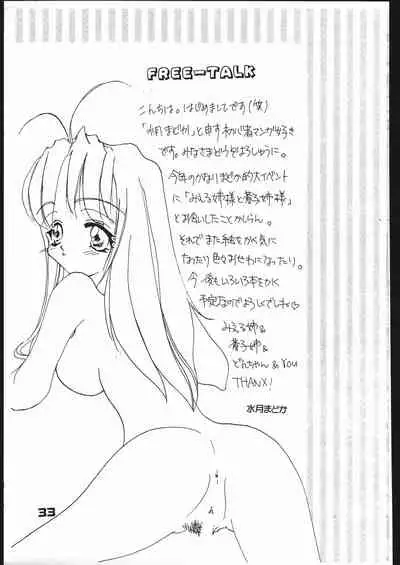 FREE-TALK
こんちは。はじめましてです(笑)
「水月まどか」と申す初心者マンガ好き
です。みなさまどうぞよろしゅうに。
今年のかなりまどか的大イベント
に「みえる姉様と貴子姉様」
とお会いしたことかしらん。
それでまた絵をかく気に
なったり色々おせわになったり。
今後もいろいろ本をかく
予定なのでよろしくでしね♡
みえる姉&
貴子姉&
どんちゃん&YOU
THANX!
水月まどか
33